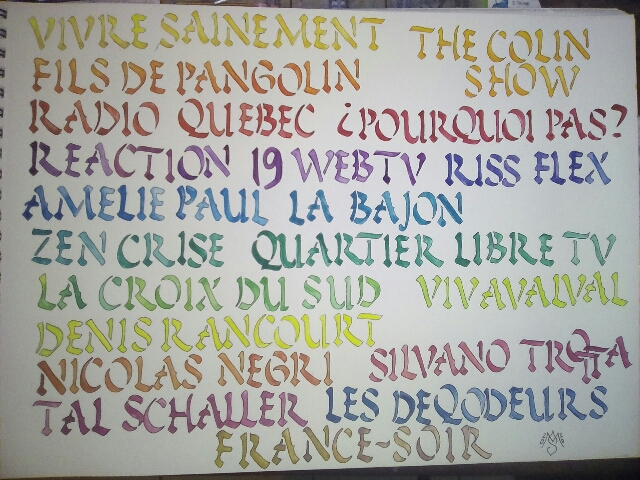 VIVRE SAINEMENT THE COLIN
FILS DE PANGOLIN SHOW
RADIO QUEBEC ¿POURQUOI PAS?
REACTION 19 WEBTV RISS FLEX
AMELIE PAUL LA BAJON
ZEN CRISE QUARTIER LIBRE TV
LA CROIX DU SUD VIVAVAIVAL
DENIS RANCOURT
NICOLAS NEGRI SILVANO TROTTA
TAL SCHALLER LES DEQODEURS
FRANCE-SOIR